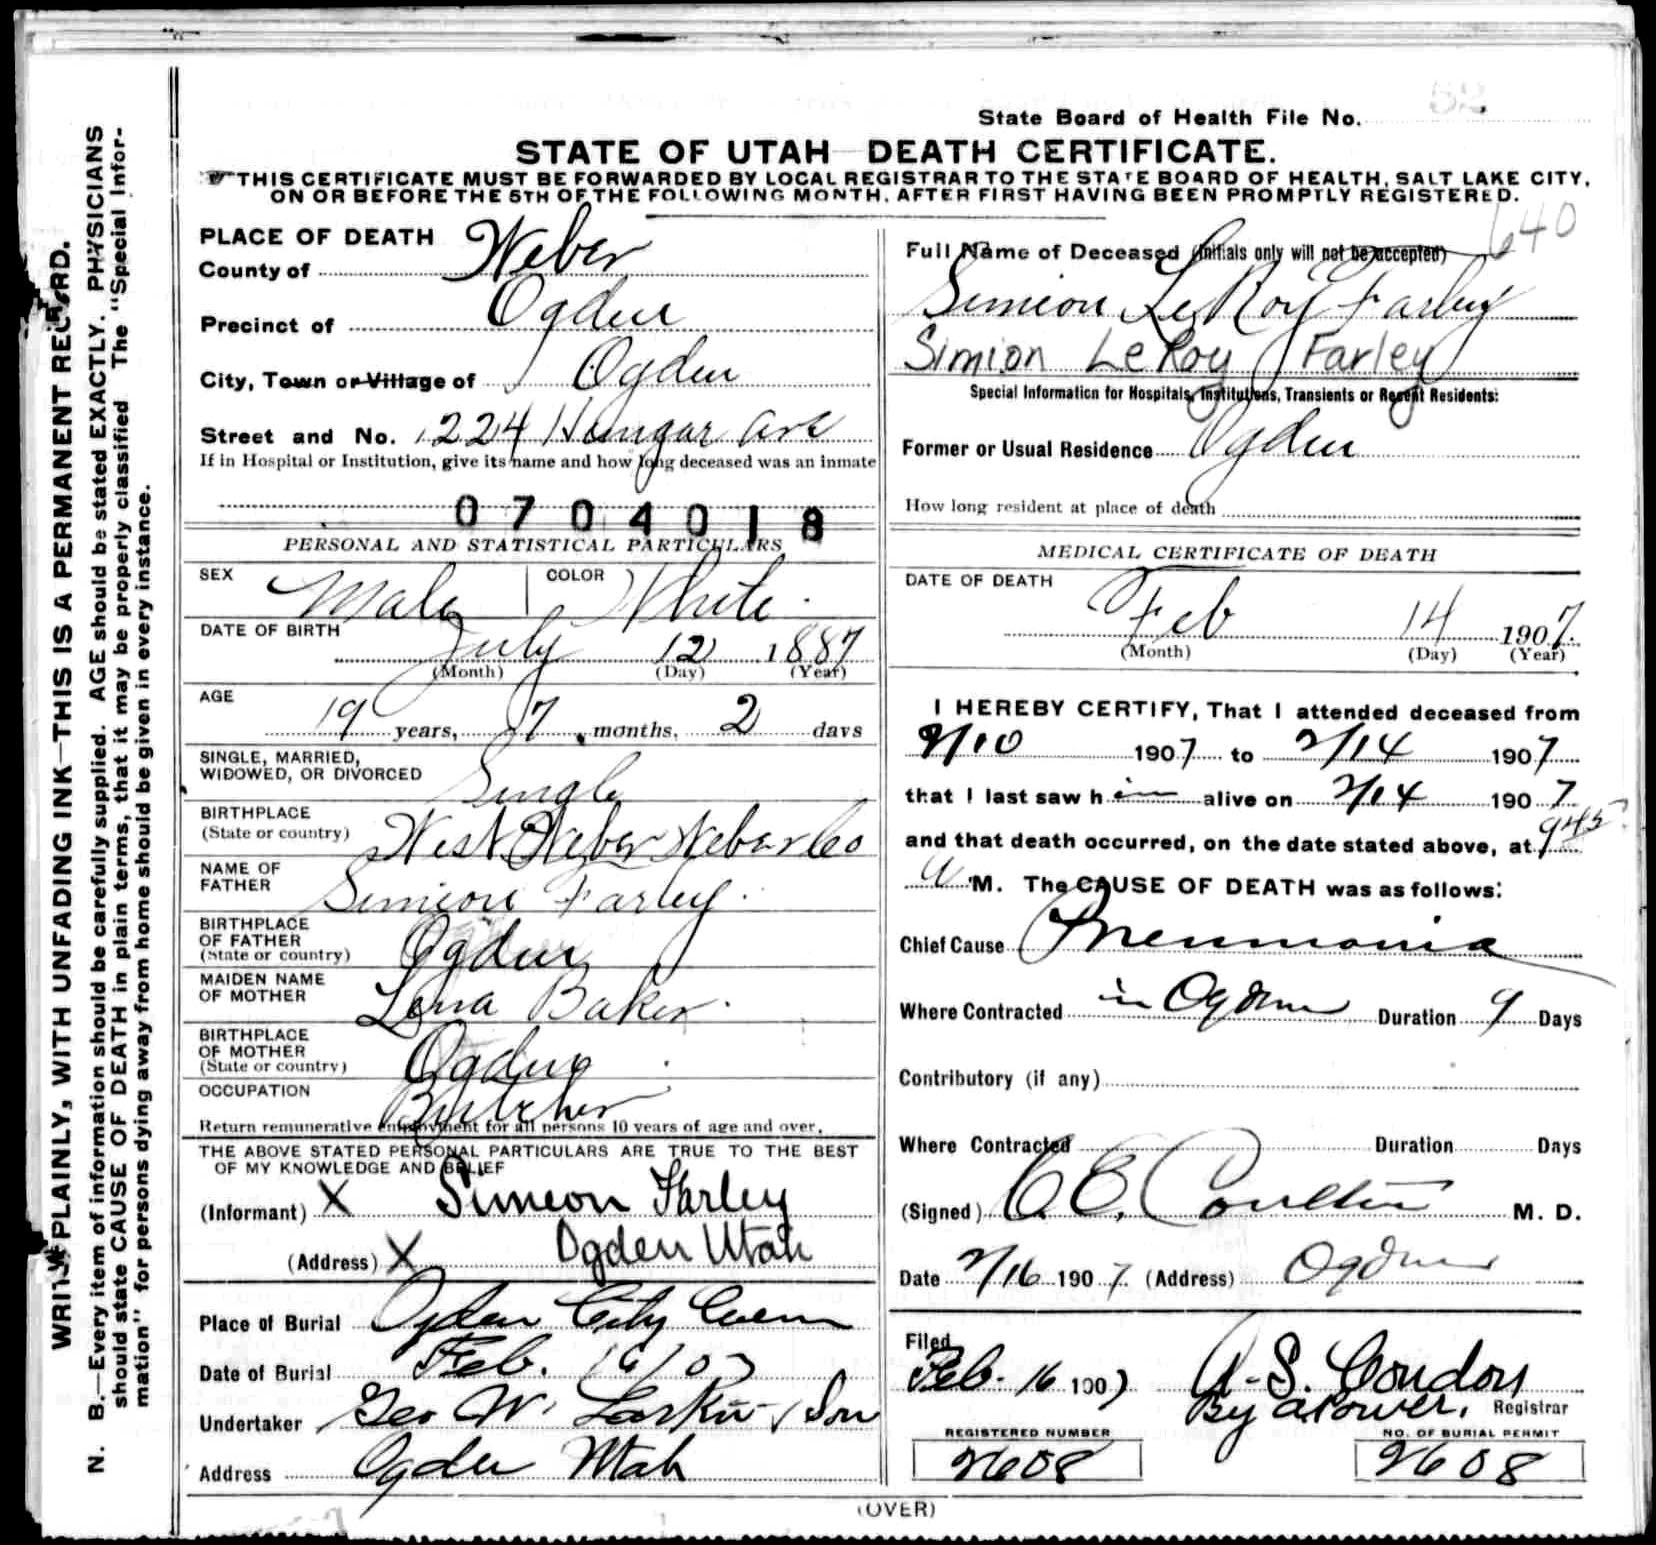 WRITE PLAINLY, WITH UNFADING INK—THIS IS A PERMANENT RECORD.
N. B.—Every item of information should be carefully supplied. AGE should be stated EXACTLY. PHYSICIANS
should state CAUSE OF DEATH in plain terms, that it may be properly classified The "Special Infor-
mation" for persons dying away from home should be given in every instance.
52
State Board of Health File No.
STATE OF UTAH—DEATH CERTIFICATE.
THIS CERTIFICATE MUST BE FORWARDED BY LOCAL REGISTRAR TO THE STATE BOARD OF HEALTH, SALT LAKE CITY,
ON OR BEFORE THE 5TH OF THE FOLLOWING MONTH, AFTER FIRST HAVING BEEN PROMPTLY REGISTERED.
640
PLACE OF DEATH
County of Weber
Precinct of Ogden
City, Town or Village of Ogden
Street and No. 1224 Ave
If in Hospital or Institution, give its name and how long deceased was an inmate
0704018
PERSONAL AND STATISTICAL PARTICULARS
SEX Male COLOR White
DATE OF BIRTH
July 12 1887
(Month) (Day) (Year)
AGE
19 years, 7 months, 2 days
SINGLE, MARRIED,
WIDOWED, OR DIVORCED Single
BIRTHPLACE
(State or country) West Weber Weber Co
NAME OF
FATHER Simeon Farley
BIRTHPLACE
OF FATHER
(State or country) Ogden
MAIDEN NAME
OF MOTHER Lena Baker
BIRTHPLACE
OF MOTHER
(State or country) Ogden
OCCUPATION Butcher
Return remunerative employment for all persons 10 years of age and over.
THE ABOVE STATED PERSONAL PARTICULARS ARE TRUE TO THE BEST
OF MY KNOWLEDGE AND BELIEF
(Informant) X Simeon Farley
(Address) X Ogden Utah
Place of Burial Ogden City Cem
Date of Burial Feb. 16/07
Undertaker Geo W. Larkin & Son
Address Ogden Utah
Full Name of Deceased (Initials only will not be accepted)
Simion LeRoy Farley
Simion LeRoy Farley
Special Information for Hospitals, Institutions, Transients or Recent Residents:
Former or Usual Residence Ogden
How long resident at place of death
MEDICAL CERTIFICATE OF DEATH
DATE OF DEATH
Feb 14 1907
(Month) (Day) (Year)
I HEREBY CERTIFY, That I attended deceased from
2/10 1907 to 2/14 1907
that I last saw him alive on 2/14 1907
and that death occurred, on the date stated above, at 9 45
a M. The CAUSE OF DEATH was as follows:
Chief Cause Pneumonia
Where Contracted in Ogden Duration 9 Days
Contributory (if any)
Where Contracted Duration Days
(Signed) C. E. Coulter M. D.
Date 2/16 1907 (Address) Ogden
Filed
Feb. 16 1907 A. S. Condon
By a Power, Registrar
REGISTERED NUMBER NO. OF BURIAL PERMIT
2608 2608
(OVER)